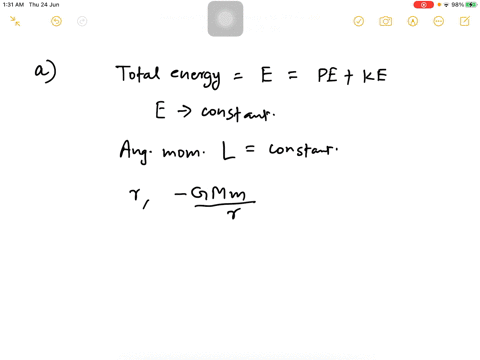 1:31 AM Thu 24 Jun 98%
a) Total energy = E = PE + KE
E → constant.
Ang. mom. L = constant.
r, -GMm/r